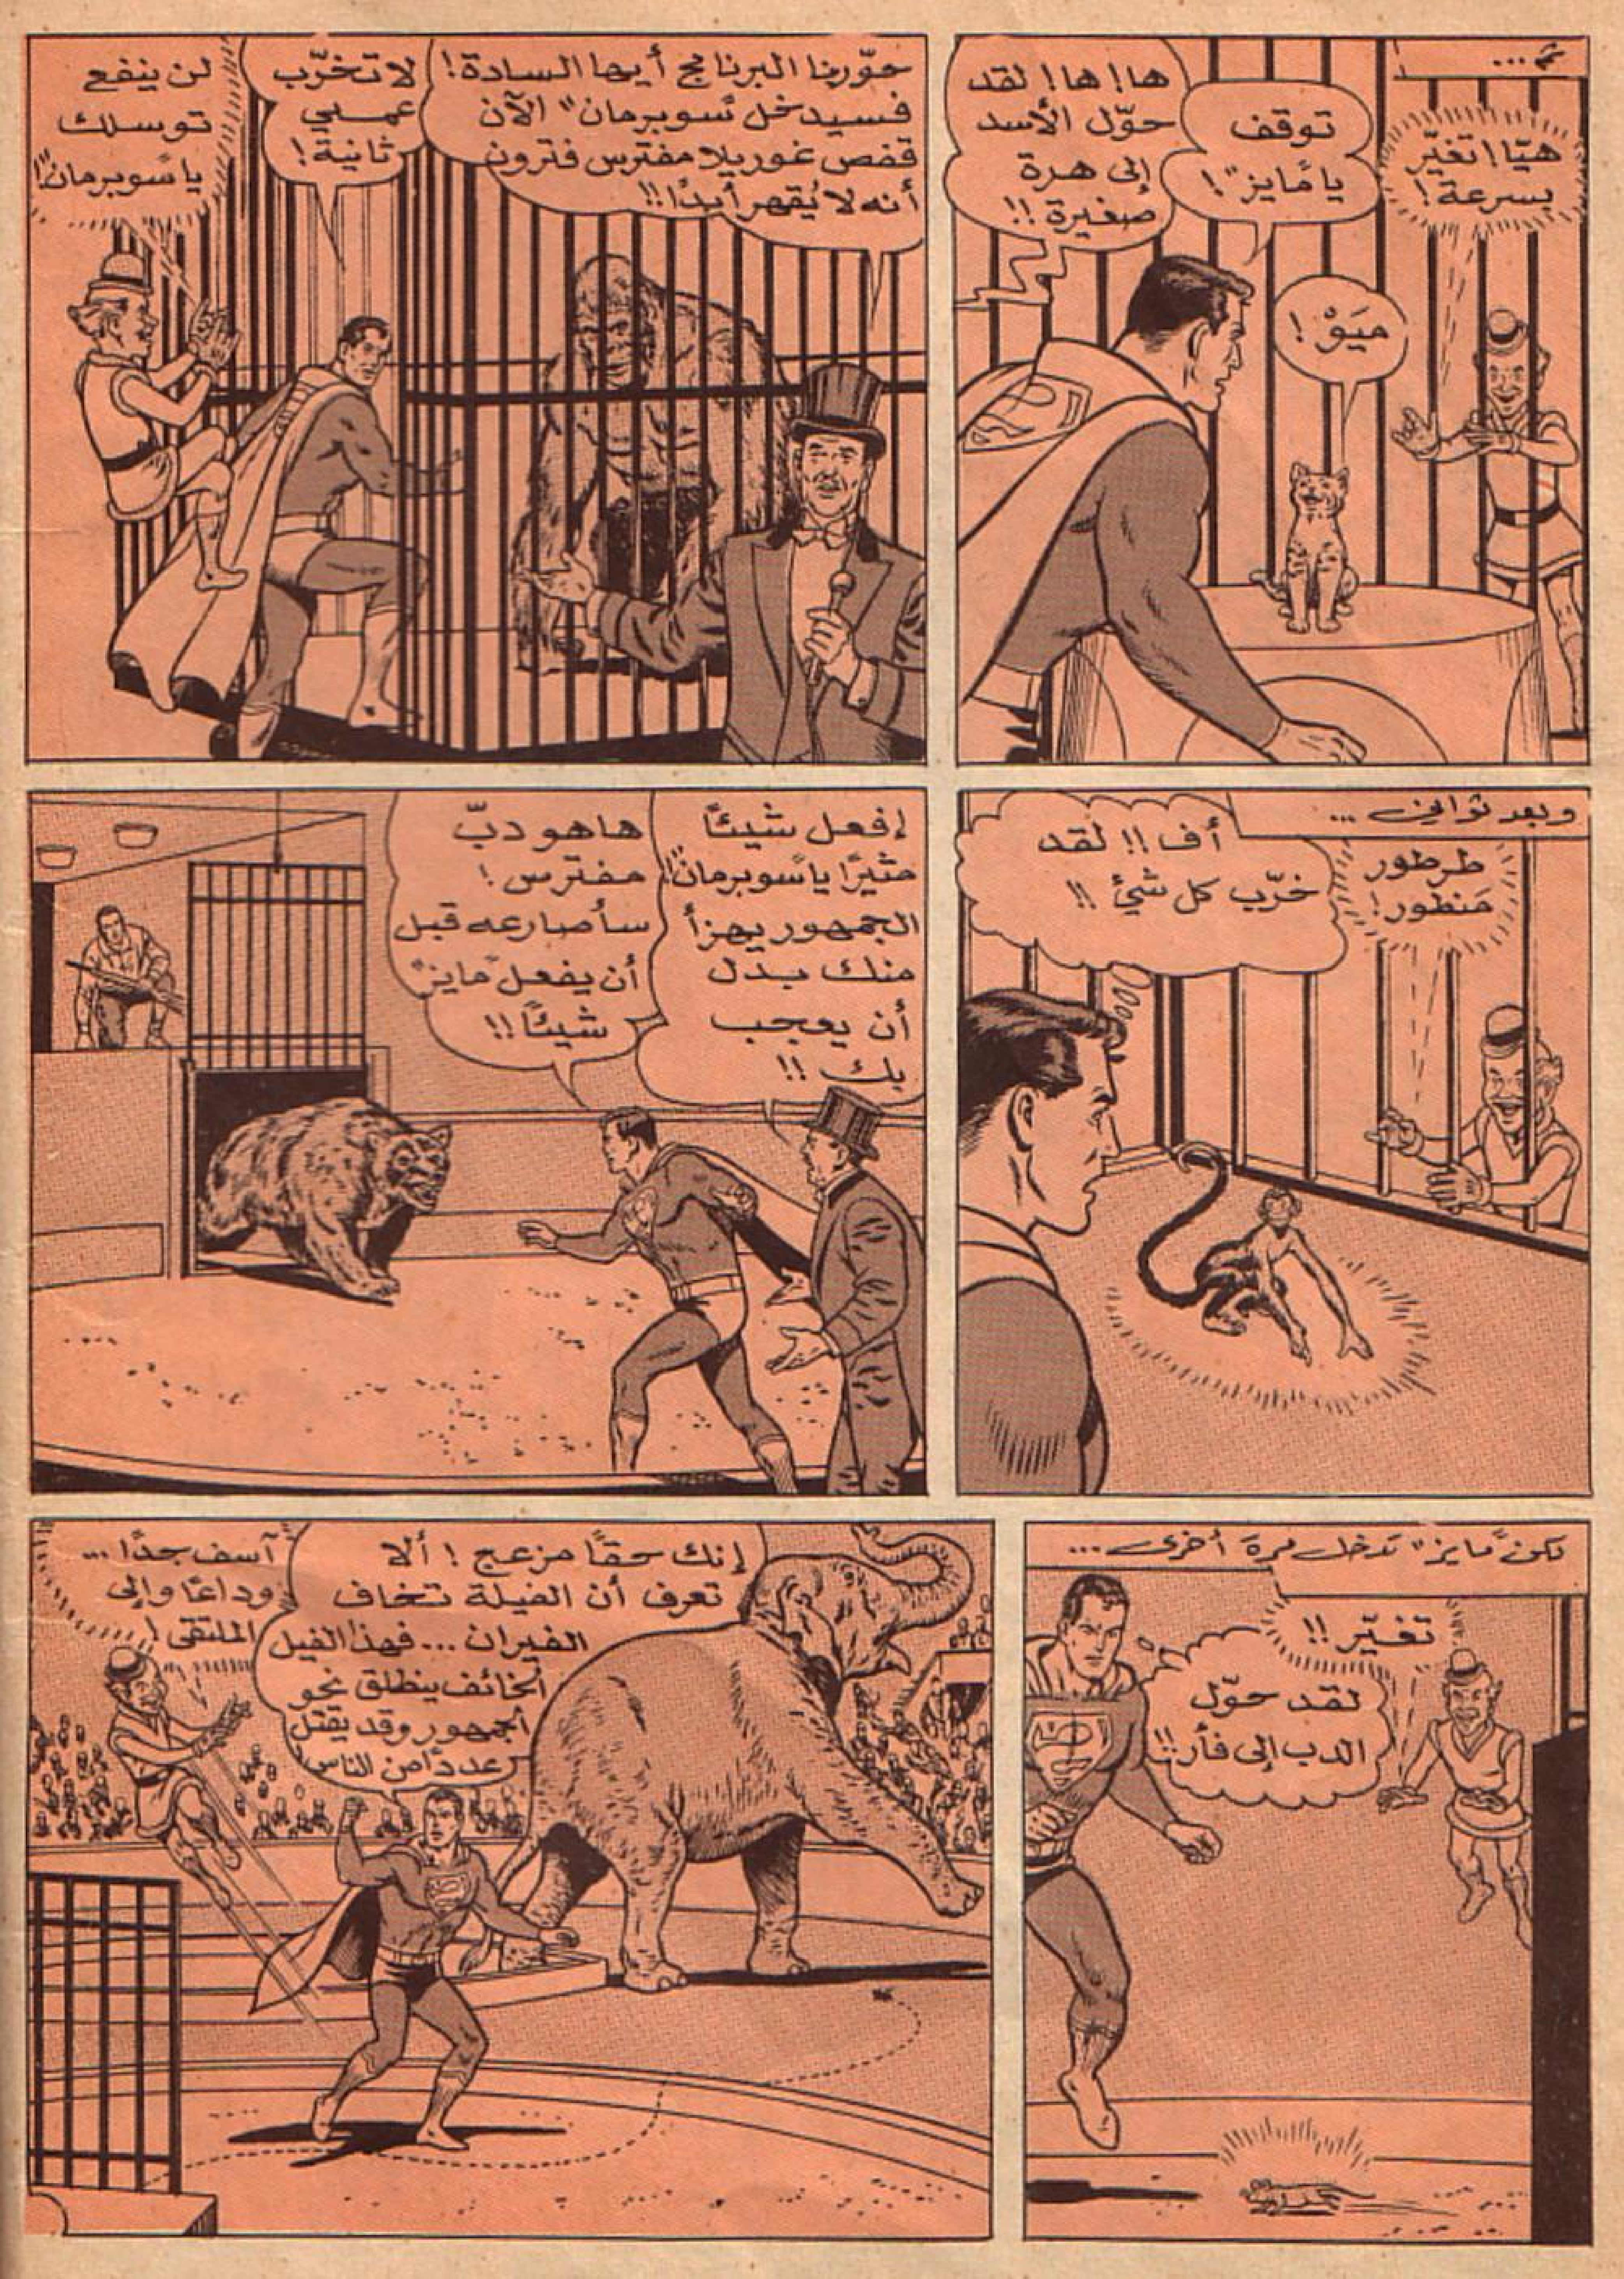 ثم ...
هيّا! تغيّر
بسرعة!
توقف
يا "مايز"!
ها! ها! لقد
حوّل الأسد
إلى هرة
صغيرة!!
ميَوْ!
حوّرنا البرنامج أيها السادة!
فسيدخل "سوبرمان" الآن
قفص غوريلا مفترس فترون
أنه لا يُقهر أبدًا!!
لا تخرّب
عملي
ثانية!
لن ينفع
توسلك
يا "سوبرمان"!
وبعد ثوانٍ ...
طرطور
مَنطور!
أف!! لقد
خرّب كل شيْ!!
إفعل شيئًا
مثيرًا يا "سوبرمان"!
الجمهور يهزأ
منك بدل
أن يعجب
بك!!
ها هو دبّ
مفترس!
سأصارعه قبل
أن يفعل "مايز"
شيئًا!!
لكن "مايز" تدخل مرة أخرى ...
تغيّر!!
لقد حوّل
الدب إلى فأر!!
إنك حقًا مزعج! ألا
تعرف أن الفيلة تخاف
الفيران ... فهذا الفيل
الخائف ينطلق نحو
الجمهور وقد يقتل
عددًا من الناس!
آسف جدًا ...
وداعًا وإلى
الملتقى!